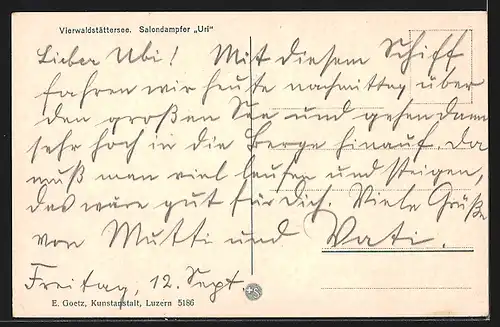 Vierwaldstättersee. Salondampfer „Uri"
Lieber Ubi! Mit diesem Schiff
fahren wir heute nachmittag über
den großen See und gehen dann
sehr hoch in die Berge hinauf. Da
muß man viel laufen und steigen,
das wäre gut für Dich. Viele Grüße
von Mutti und Vati.
Freitag, 12. Sept.
E. Goetz, Kunstanstalt, Luzern 5186